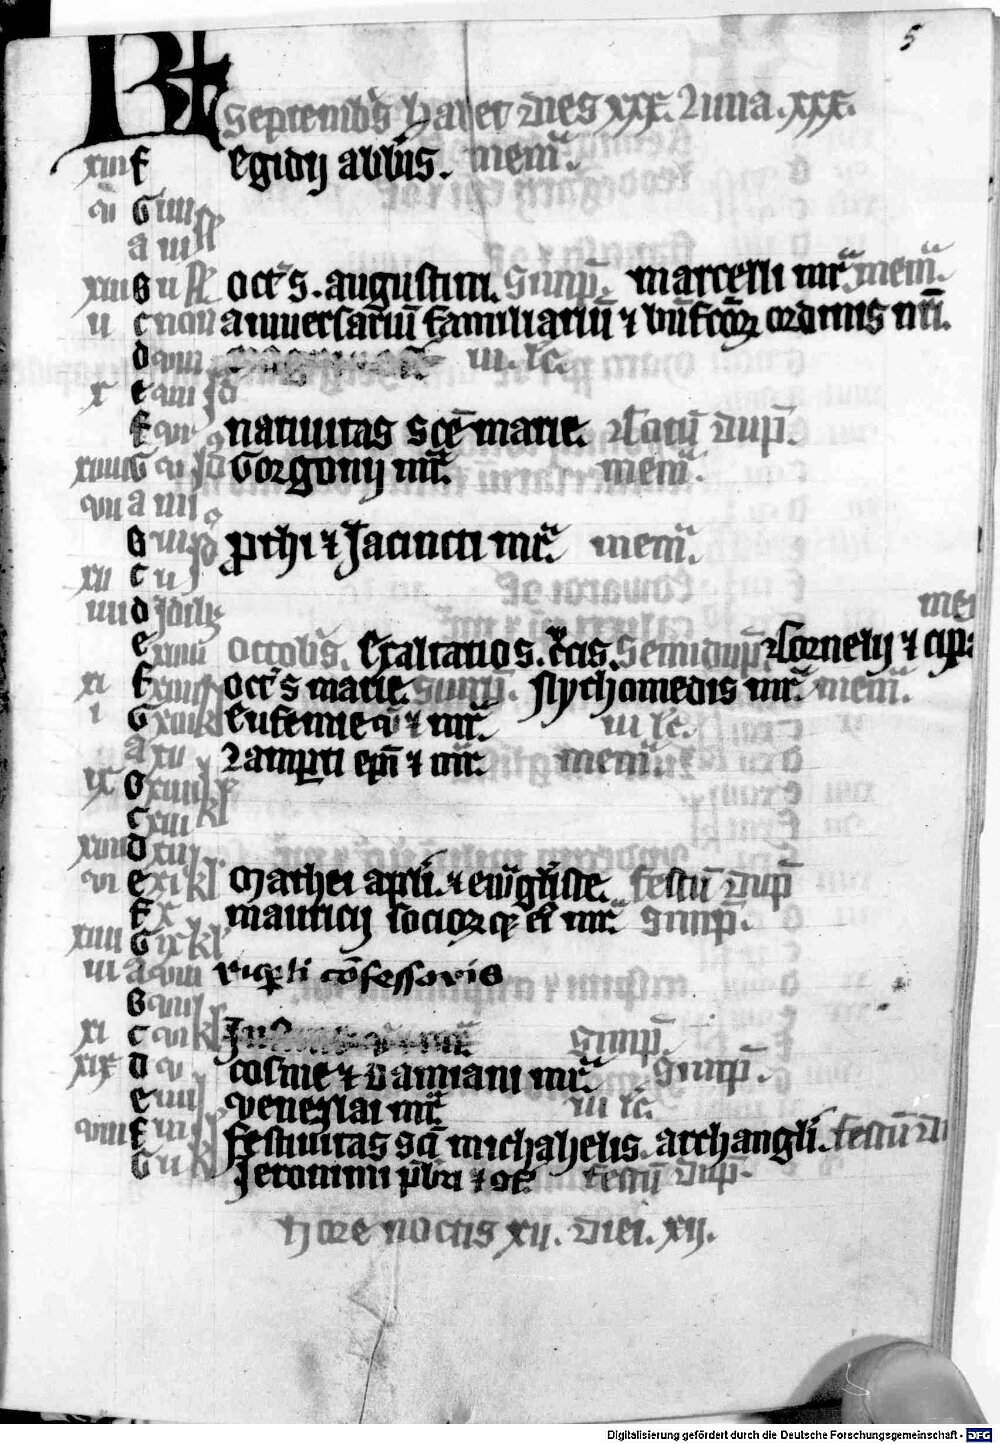 5
Kł
Septembꝰ habet dies xxx. Luna. xxx.
xvi f Egidij abbīs. mem̄.
v G iiii
a iii
xiii b ii Oct̄ s. augustini. Simp̄. marcelli mr̄. mem̄.
ii c non Anniuersariū familiariū ⁊ bn̄fcōꝝ ordinis nr̄i.
d viii iii. lc̄.
x e vii Id
f vi natiuitas scē marie. Totū dup̄.
xviii G v Id Gorgonij mr̄. mem̄.
vii a iiii
b iii Id prothi ⁊ Jacincti mr̄. mem̄.
xv c ii
iiii d Idib
mem
e xviii Octobꝰ. Exaltatio s. crucis. Semidup̄. Cornelij ⁊ cip
xii f xvii Oct̄ s marie. simp̄. Nychomedis mr̄. mem̄.
i G xvi kl Eufemie v̄ ⁊ mr̄. iii lc̄.
a xv Lamp̄ti ep̄i ⁊ mr̄. mem̄.
ix b xiiii
c xiii kl
xvii d xii
vi e xi kl Mathei apl̄i. ⁊ ewgl̄iste. festū dup̄
f x mauricij socioꝝqꝫ eiꝰ mr̄. simp̄.
xiiii G ix kl
iii a viii rup̄ti cōfessoris
b vii
xi c vi kl simp̄.
xix d v cosme ⁊ Damiani mr̄. simp̄.
e iiii Venezlai mr̄ iii lc̄.
viii f iii festiuitas scī michahelis. archangl̄i. festū Du
G ii kl Jeronimi p̄bri ⁊ of. festū Dup̄.
Hore noctis xij. Diei. xij.
Digitalisierung gefördert durch die Deutsche Forschungsgemeinschaft - DFG